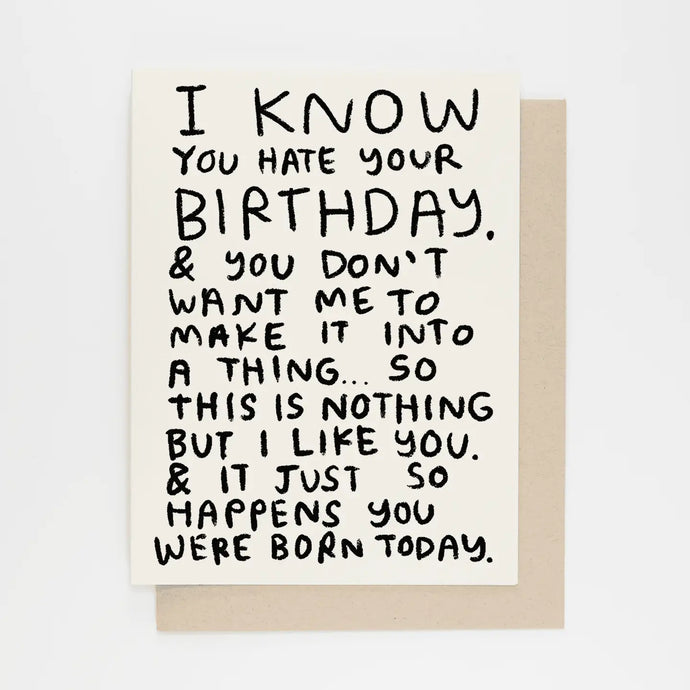 I KNOW
YOU HATE YOUR
BIRTHDAY.
& YOU DON'T
WANT ME TO
MAKE IT INTO
A THING... SO
THIS IS NOTHING
BUT I LIKE YOU.
& IT JUST SO
HAPPENS YOU
WERE BORN TODAY.